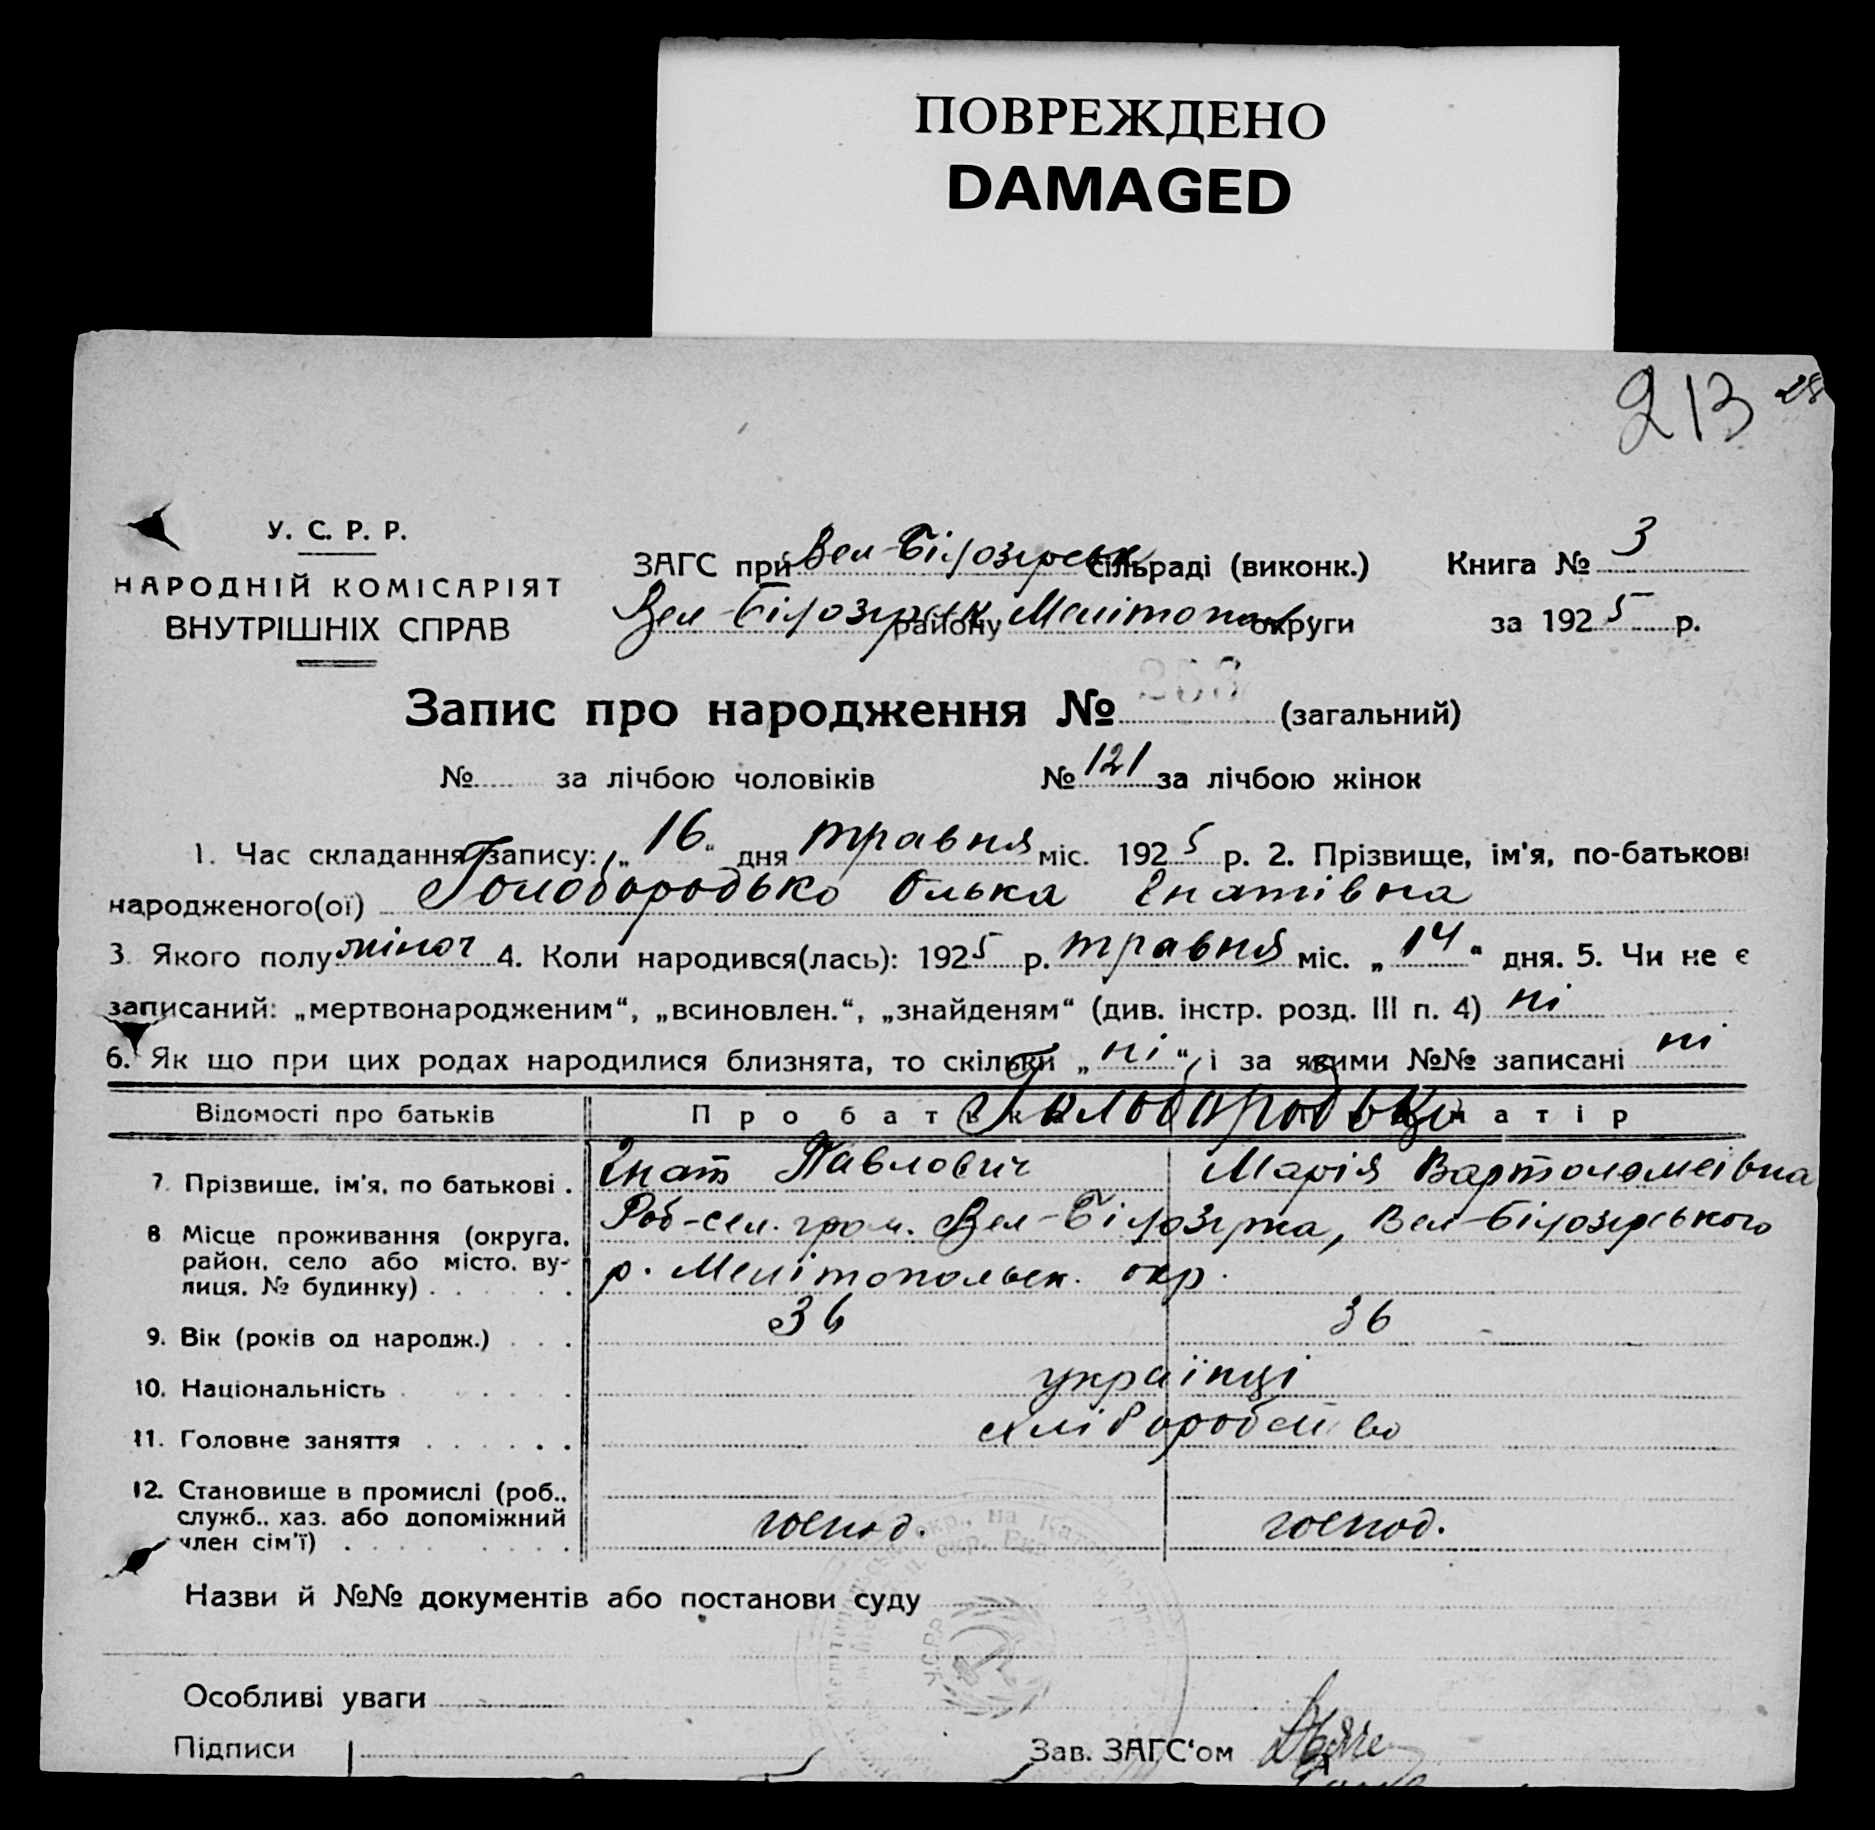 ПОВРЕЖДЕНО
DAMAGED
213 28
У. С. Р. Р.
НАРОДНІЙ КОМІСАРІЯТ
ВНУТРІШНІХ СПРАВ
ЗАГС при Вел-Білозірськ сільраді (виконк.) Книга № 3
Вел-Білозірськ району Мелітопол округи за 1925 р.
Запис про народження № (загальний)
№ за лічбою чоловіків № 121 за лічбою жінок
1. Час складання запису: „16“ дня травня міс. 1925 р. 2. Прізвище, ім'я, по-батькові
народженого(ої) Голобородько Олька Гнатівна
3. Якого полу жіноч 4. Коли народився(лась): 1925 р. травня міс. „14“ дня. 5. Чи не є
записаний: „мертвонародженим“, „всиновлен.“, „знайденям“ (див. інстр. розд. III п. 4) ні
6. Як що при цих родах народилися близнята, то скільки „ні“, і за якими №№ записані ні
Відомості про батьків Про батька матір
Голобородьки
7. Прізвище, ім'я, по батькові . Гнат Павлович Марія Вартоломеівна
8 Місце проживання (округа, район, село або місто, ву-лиця, № будинку) . . . . . . Роб-сел. гром. Вел-Білозірка, Вел-Білозірського
р. Мелітопольськ. окр.
9. Вік (років од народж.) . . . 36 36
10. Національність . . . . . . українці
11. Головне заняття . . . . . . хліборобство
12. Становище в промислі (роб., служб., хаз. або допоміжний член сім'ї) . . . . . . господ. господ.
Назви й №№ документів або постанови суду
Особливі уваги
Підписи Зав. ЗАГС'ом
У.С.Р.Р.